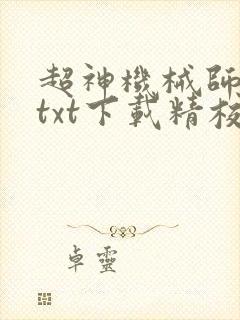 超神機械師
txt下載精校
卓靈